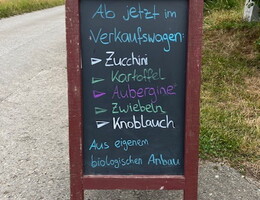 Ab jetzt im
Verkaufswagen:
Zucchini
Kartoffel
Aubergine
Zwiebeln
Knoblauch
Aus eigenem
biologischen Anbau